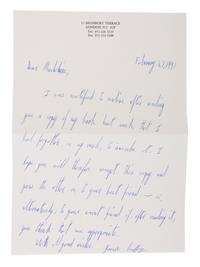 TERRACE
LONDON
Tel: 071
Fax: 071
February 1991
Dear
I was mortified to notice after sending
you a copy of my book last week that I
had forgotten, in my rush, to inscribe it. I
hope you will therefore accept this copy and
pass the other on to your best friend — or,
alternatively, to your worst friend if, after reading it,
you think that more appropriate.
With all good wishes